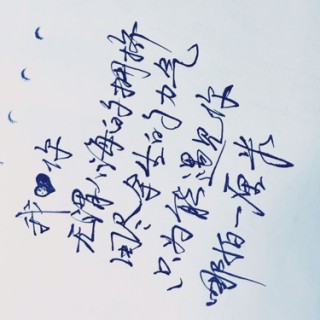 我♥你
无谓人海的拥挤
用尽余生的勇气
只为能靠近你
哪怕一厘米